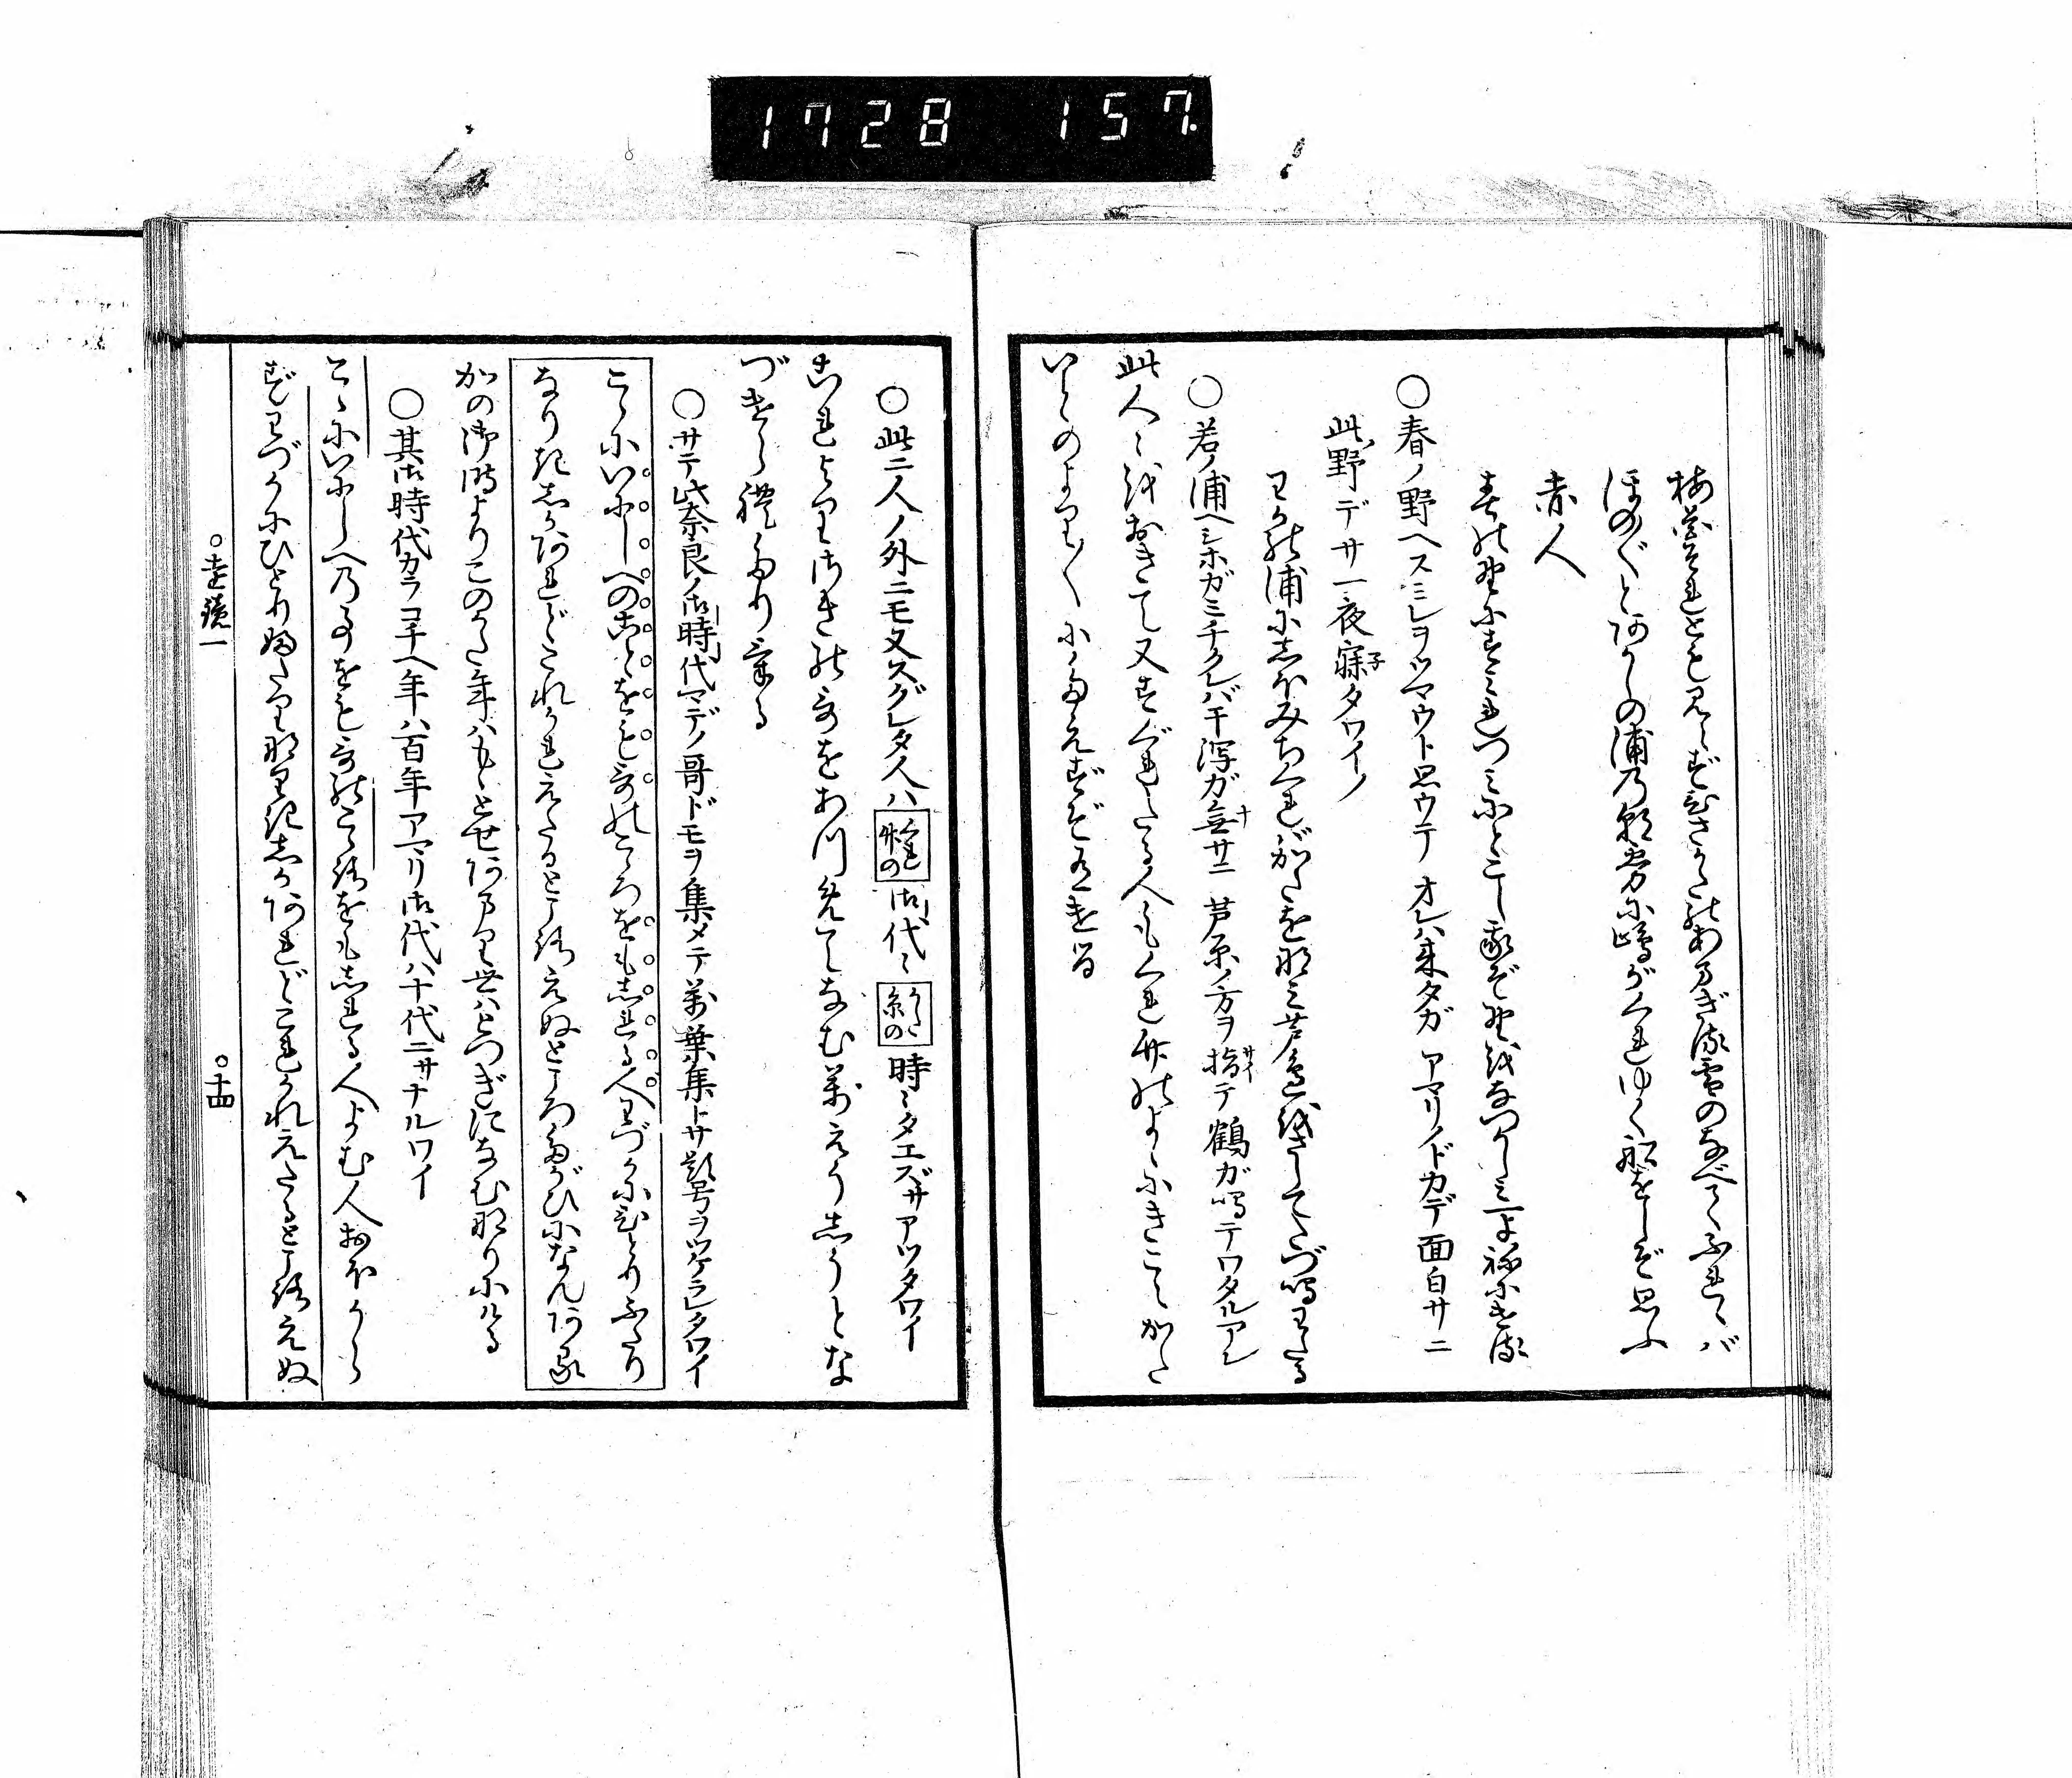 1728 157
梅花それとも見えず久さかたのあまぎる雪のなべてふれゝバ
ほの〴〵とあかしの浦乃朝霧に嶋がくれゆく舩をしぞ思ふ
赤人
春の野にすミれつミにとこし我ぞ野をなつかしミ一よねにける
○春ノ野ヘスミレヲツマウト思ウテ オレハ来タガ アマリノドカデ面白サニ
此ノ野デサ一夜寐タワイノ
わかの浦にしほみちくれバかたを那ミ芦邉をさしてたづ鳴わたる
○若ノ浦ヘシホガミチクレバ干潟ガ無サニ 芦原ノ方ヲ指テ鶴ガ鳴テワタルアレ
此人〻をおきて又すぐれたる人もくれ竹のよゝにきこえかた
いとのより〳〵にたえずぞ有ける
○此二人ノ外ニモ又スグレタ人ハくれ竹の御代〻かた糸の時〻タエズサアツタワイ
これよりさきの哥をあつめてなむ萬えうしうとな
づけられたりける
○サテ此奈良ノ御時代マデノ哥ドモヲ集メテ萬葉集トサ題号ヲツケラレタワイ
こゝにいにしへのことをも哥のこゝろをもしれる人わづかにひとりふたり
なりきしかあれどこれかれえたるところえぬところたがひになんある
かの御時よりこのかた年ハもゝとせあまり世ハとつぎになむ那りにける
○其御時代カラコチヘ年ハ百年アマリ御代ハ十代ニサナルワイ
こゝにいにしへ乃事をも哥のこゝろをもしれる人よむ人おほからず
ずわづかにひとりふたり那りきしかあれどこれかれえたるところえぬ
○遠鏡一 ○十四